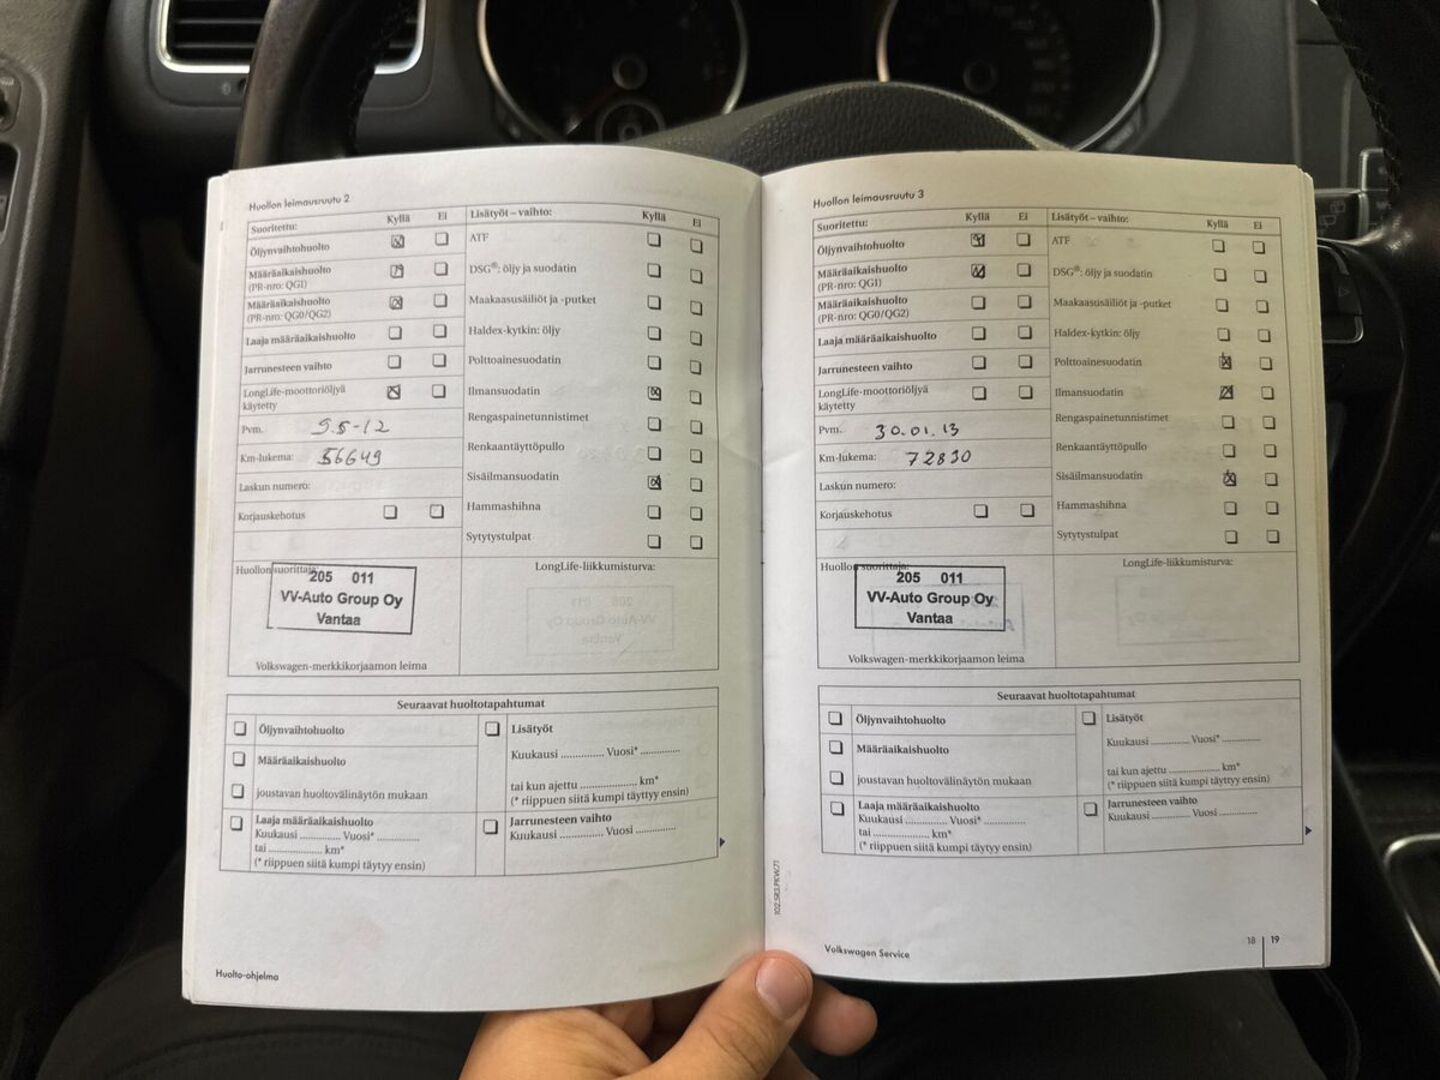 Huollon leimausruutu 2
Suoritettu: Kyllä Ei Lisätyöt – vaihto: Kyllä Ei
Öljynvaihtohuolto ATF
Määräaikaishuolto
(PR-nro: QG1) DSG®: öljy ja suodatin
Määräaikaishuolto
(PR-nro: QG0/QG2) Maakaasusäiliöt ja -putket
Laaja määräaikaishuolto Haldex-kytkin: öljy
Jarrunesteen vaihto Polttoainesuodatin
LongLife-moottoriöljyä
käytetty Ilmansuodatin
Pvm. 9.5-12 Rengaspainetunnistimet
Km-lukema: 56649 Renkaantäyttöpullo
Laskun numero: Sisäilmansuodatin
Korjauskehotus Hammashihna
Sytytystulpat
Huollon suorittaja: LongLife-liikkumisturva:
205 011
VV-Auto Group Oy
Vantaa
Volkswagen-merkkikorjaamon leima
Seuraavat huoltotapahtumat
Öljynvaihtohuolto Lisätyöt
Määräaikaishuolto Kuukausi ............... Vuosi* ...............
joustavan huoltovälinäytön mukaan tai kun ajettu ..................... km*
(* riippuen siitä kumpi täyttyy ensin)
Laaja määräaikaishuolto Jarrunesteen vaihto
Kuukausi ............... Vuosi* ............... Kuukausi ............... Vuosi ...............
tai ..................... km*
(* riippuen siitä kumpi täytyy ensin)
Huolto-ohjelma
Huollon leimausruutu 3
Suoritettu: Kyllä Ei Lisätyöt – vaihto: Kyllä Ei
Öljynvaihtohuolto ATF
Määräaikaishuolto
(PR-nro: QG1) DSG®: öljy ja suodatin
Määräaikaishuolto
(PR-nro: QG0/QG2) Maakaasusäiliöt ja -putket
Laaja määräaikaishuolto Haldex-kytkin: öljy
Jarrunesteen vaihto Polttoainesuodatin
LongLife-moottoriöljyä
käytetty Ilmansuodatin
Pvm. 30.01.13 Rengaspainetunnistimet
Km-lukema: 72830 Renkaantäyttöpullo
Laskun numero: Sisäilmansuodatin
Korjauskehotus Hammashihna
Sytytystulpat
Huollon suorittaja: LongLife-liikkumisturva:
205 011
VV-Auto Group Oy
Vantaa
Volkswagen-merkkikorjaamon leima
Seuraavat huoltotapahtumat
Öljynvaihtohuolto Lisätyöt
Määräaikaishuolto Kuukausi ............... Vuosi* ...............
joustavan huoltovälinäytön mukaan tai kun ajettu ..................... km*
(* riippuen siitä kumpi täyttyy ensin)
Laaja määräaikaishuolto Jarrunesteen vaihto
Kuukausi ............... Vuosi* ............... Kuukausi ............... Vuosi ...............
tai ..................... km*
(* riippuen siitä kumpi täytyy ensin)
Volkswagen Service 18 19